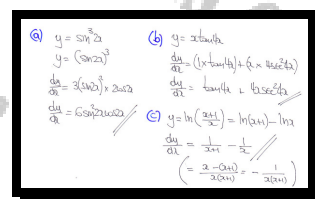 (a) y = sin³2x
y = (sin2x)³
dy/dx = 3(sin2x)² × 2cos2x
dy/dx = 6sin²2x cos2x
(b) y = x tan4x
dy/dx = (1 × tan4x) + (x × 4sec²4x)
dy/dx = tan4x + 4x sec²4x
(c) y = ln((x+1)/x) = ln(x+1) - lnx
dy/dx = 1/(x+1) - 1/x
(= (x-(x+1))/(x(x+1)) = - 1/(x(x+1)))